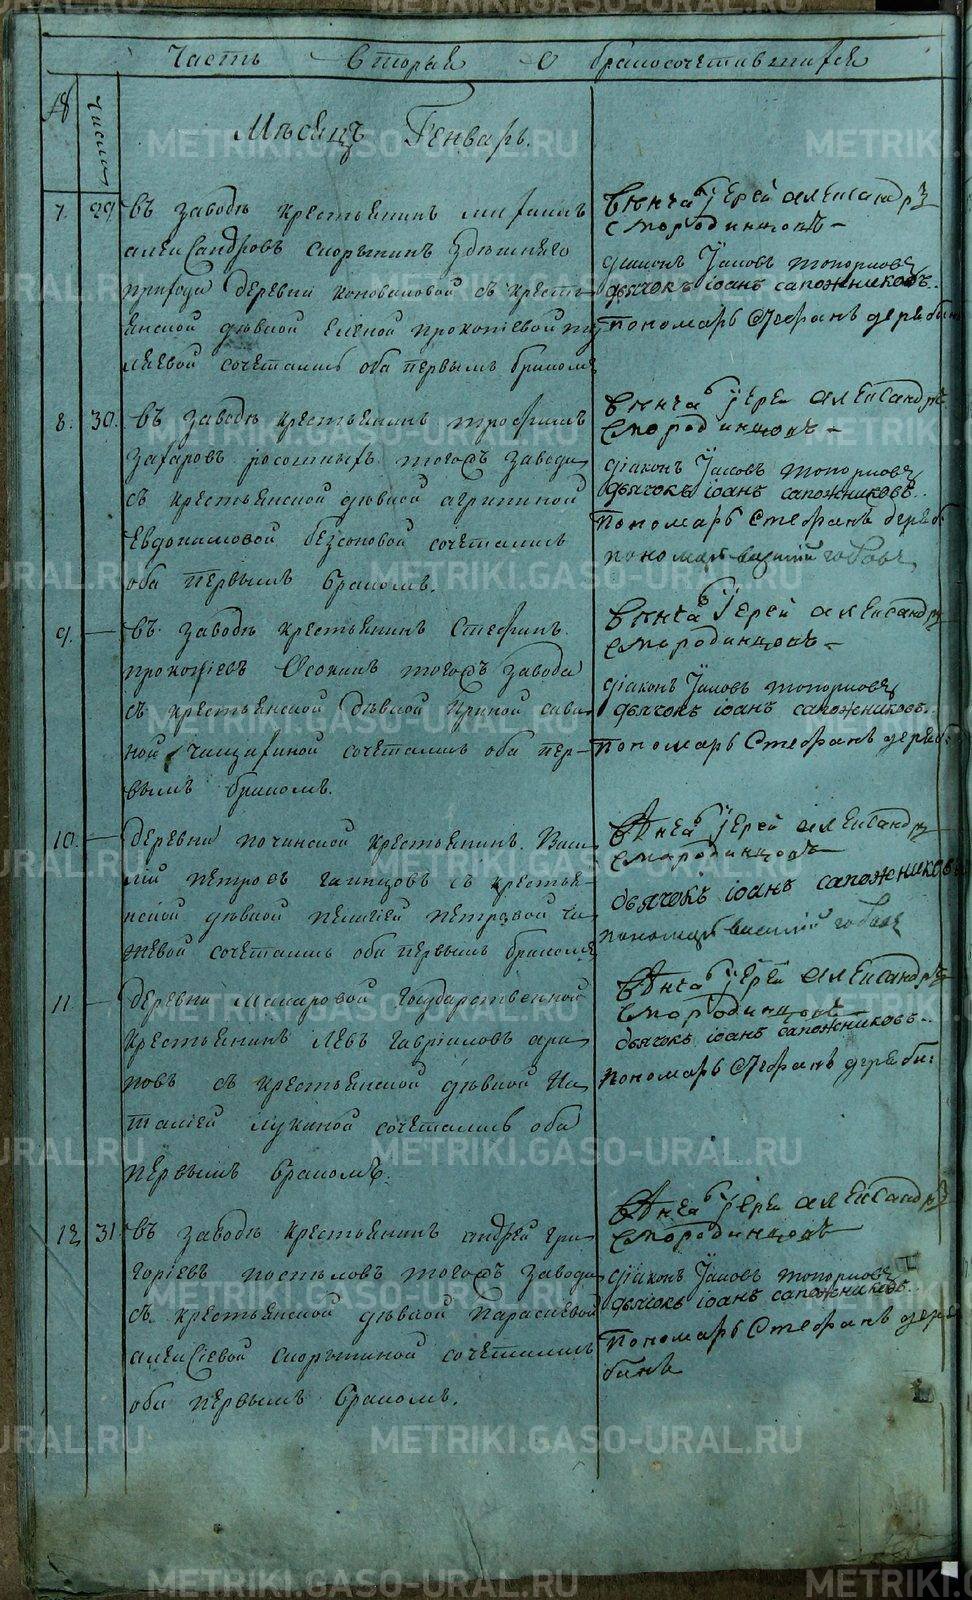 Часть вторая о бракосочетавшихся
Числы
Месяцъ Генварь.
7. 29 въ заводѣ крестьянинъ
александровъ Скорынинъ здешняго
прихода деревни коноваловой съ кресть-
янской дѣвкой еленой прокопіевой
сочетались оба первымъ бракомъ
венча іерей александръ
смородинцовъ
діаконъ Іаковъ топорковъ
дьячокъ іоанъ сапожниковъ.
пономарь Стефанъ дерябинъ
8. 30. въ заводѣ крестьянинъ трофимъ
захаровъ того жъ завода
съ крестьянской дѣвкой агрипиной
Евдокимовой безсоновой сочетались
оба первымъ бракомъ.
венча іерей александръ
смородинцовъ
діаконъ Іаковъ топорковъ
дьячокъ іоанъ сапожниковъ.
пономарь Стефанъ деряб
пономарь василій
9. въ заводѣ крестьянинъ Стефанъ
прокопіевъ Осокинъ того жъ завода
съ крестьянской дѣвкой Ириной сави-
ной сочетались оба пер-
вымъ бракомъ.
венча іерей александръ
смородинцовъ
діаконъ Іаковъ топорковъ
дьячокъ іоанъ сапожниковъ.
пономарь Стефанъ деряб
10. деревни починской крестьянинъ Васи-
лій петровъ съ крестья-
нской дѣвкой пелагіей петровой
сочетались оба первымъ бракомъ
венча іерей александръ
смородинцовъ
дьячокъ іоанъ сапожниковъ
пономарь василій
11 деревни макаровой государственной
крестьянинъ Левъ гавріиловъ ара-
повъ съ крестьянской дѣвкой На-
таліей лукиной сочетались оба
первымъ бракомъ.
венча іерей александръ
смородинцовъ
дьячокъ іоанъ сапожниковъ.
пономарь Стефанъ деряби:
12 31 въ заводѣ крестьянинъ андрей гри-
горіевъ поспѣловъ того жъ завода
съ крестьянской дѣвкой параскевой
алексіевой скорыниной сочетались
оба первымъ бракомъ.
венча іерей александръ
смородинцовъ
діаконъ Іаковъ топорковъ
дьячокъ іоанъ сапожниковъ.
пономарь Стефанъ деря
бинъ
METRIKI.GASO-URAL.RU